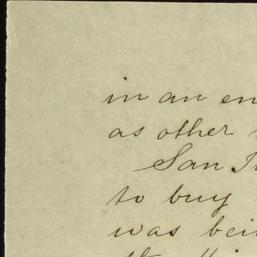 in an en
as other
San
to buy
was bei